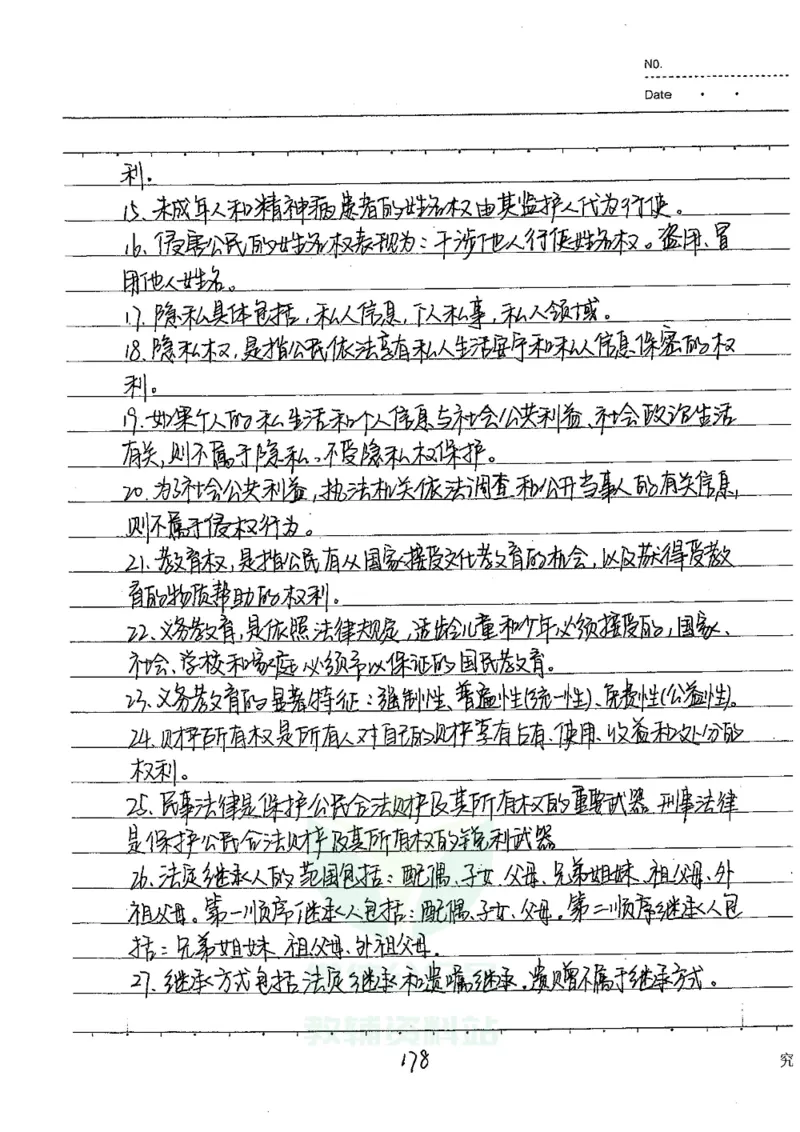 NO.
Date
利。
15、未成年人和精神病患者的姓名权由其监护人代为行使。
16、侵害公民的姓名权表现为：干涉他人行使姓名权。盗用、冒
用他人姓名。
17、隐私具体包括，私人信息，个人私事，私人领域。
18、隐私权，是指公民依法享有私人生活安宁和私人信息保密的权
利。
19、如果个人的私生活和个人信息与社会公共利益、社会政治生活
有关，则不属于隐私、不受隐私权保护。
20、为了社会公共利益，执法机关依法调查和公开当事人的有关信息，
则不属于侵权行为。
21、教育权，是指公民有从国家接受文化教育的机会，以及获得受教
育的物质帮助的权利。
22、义务教育，是依照法律规定，适龄儿童和少年必须接受的，国家、
社会、学校和家庭必须予以保证的国民教育。
23、义务教育的显著特征：强制性、普遍性(统一性)、免费性(公益性)。
24、财产所有权是所有人对自己的财产享有占有、使用、收益和处分的
权利。
25、民事法律是保护公民合法财产及其所有权的重要武器 刑事法律
是保护公民合法财产及其所有权的锐利武器
26、法定继承人的范围包括：配偶、子女、父母、兄弟姐妹、祖父母、外
祖父母。第一顺序继承人包括：配偶、子女、父母。第二顺序继承人包
括：兄弟姐妹、祖父母、外祖父母。
27、继承方式包括法定继承和遗嘱继承。遗赠不属于继承方式。
教辅资料站
178
究